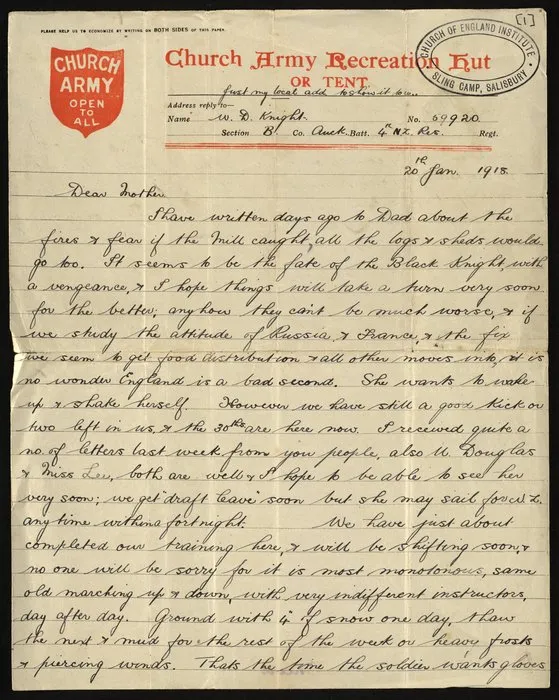 PLEASE HELP US TO ECONOMIZE BY WRITING ON BOTH SIDES OF THIS PAPER.
[1]
CHURCH ARMY OPEN TO ALL
Church Army Recreation Hut
OR TENT
CHURCH OF ENGLAND INSTITUTE
SLING CAMP, SALISBURY
Just my local add to show it is..
Address reply to—
Name W. D. Knight. No. 69920
Section B' Co. Auck. Batt. 4th N.Z. Res. Regt.
20th Jan. 1918.
Dear Mother
I have written days ago to Dad about the
fires & fear if the Mill caught, all the logs & sheds would
go too. It seems to be the fate of the Black Knight, with
a vengeance, & I hope things will take a turn very soon
for the better; anyhow they can't be much worse, & if
we study the attitude of Russia, & France, & the fix
we seem to get food distribution & all other "moves" into, it is
no wonder England is a bad second. She wants to wake
up & shake herself. However we have still a good kick or
two left in us, & the 30ths are here now. I received quite a
no. of letters last week from you people, also U. Douglas
& Miss Lee, both are well & I hope to be able to see her
very soon; we get "draft leave" soon but she may sail for N.Z.
any time within a fortnight. We have just about
completed our training here, & will be shifting soon, &
no one will be sorry for it is most monotonous, same
old marching up & down, with very indifferent instructors,
day after day. Ground with 4" of snow one day, thaw
the next & mud for the rest of the week or heavy frosts
& piercing winds. Thats the time the soldier wants gloves